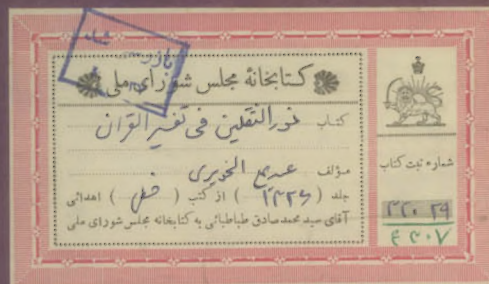 بازرسی شد
کتابخانهٔ مجلس شورای ملی
کتاب نور الثقلین فی تفسیر القران
مؤلف عبد علی الحویزی
جلد (۱۳۲۶) از کتب (خطی) اهدائی
آقای سید محمد صادق طباطبائی به کتابخانه مجلس شورای ملی
شماره ثبت کتاب
۲۲۰۲۹
۴۳۰۷